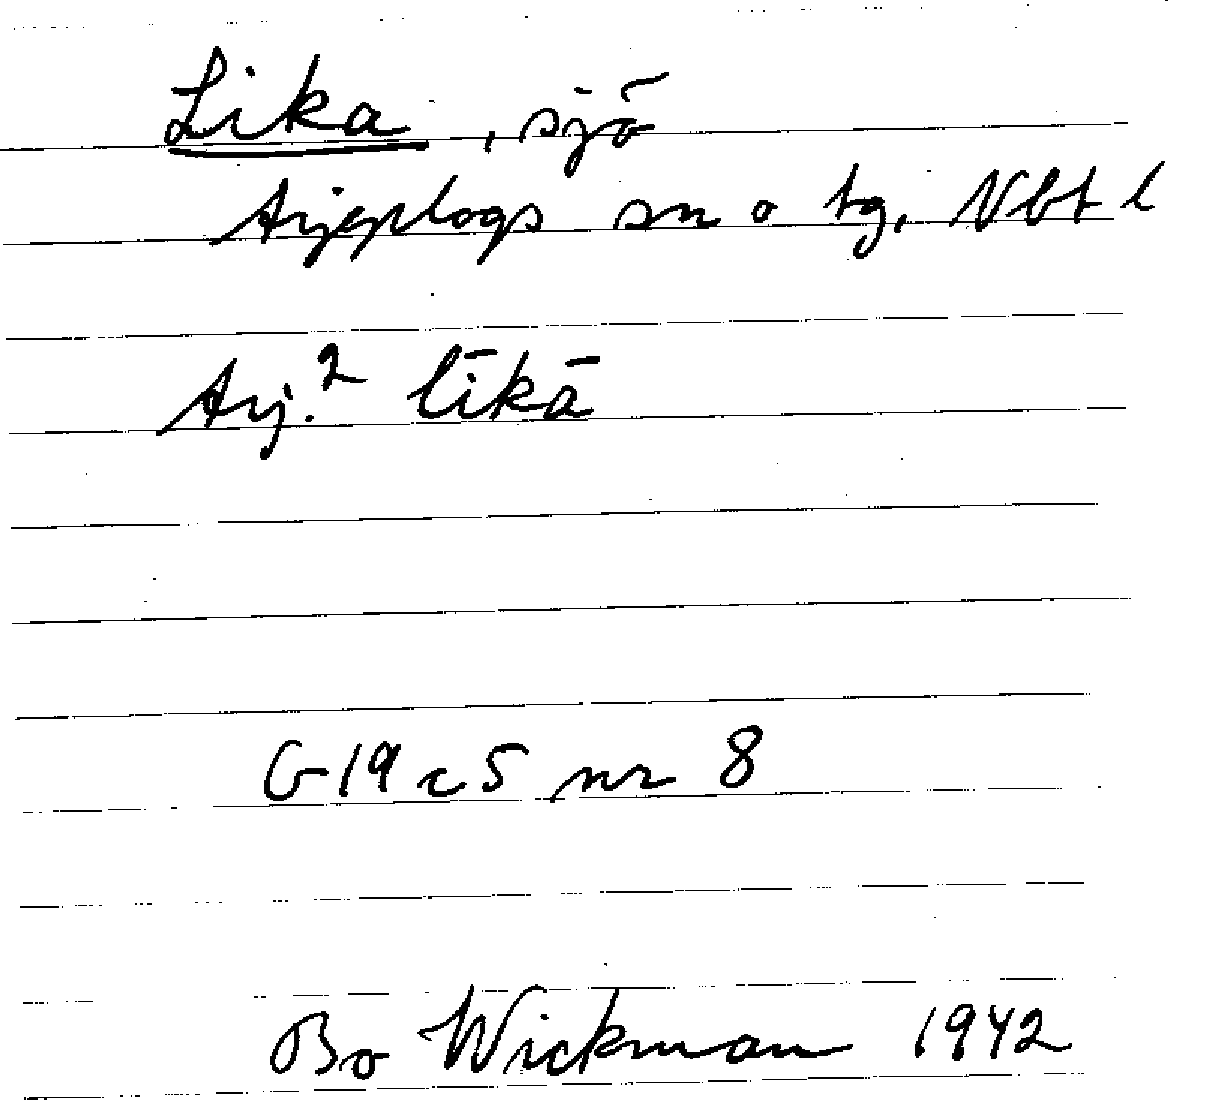 Lika, sjö
Arjeplogs sn o tg, Nbt l
Arj.² līkā
G 19 c 5 nr 8
Bo Wickman 1942